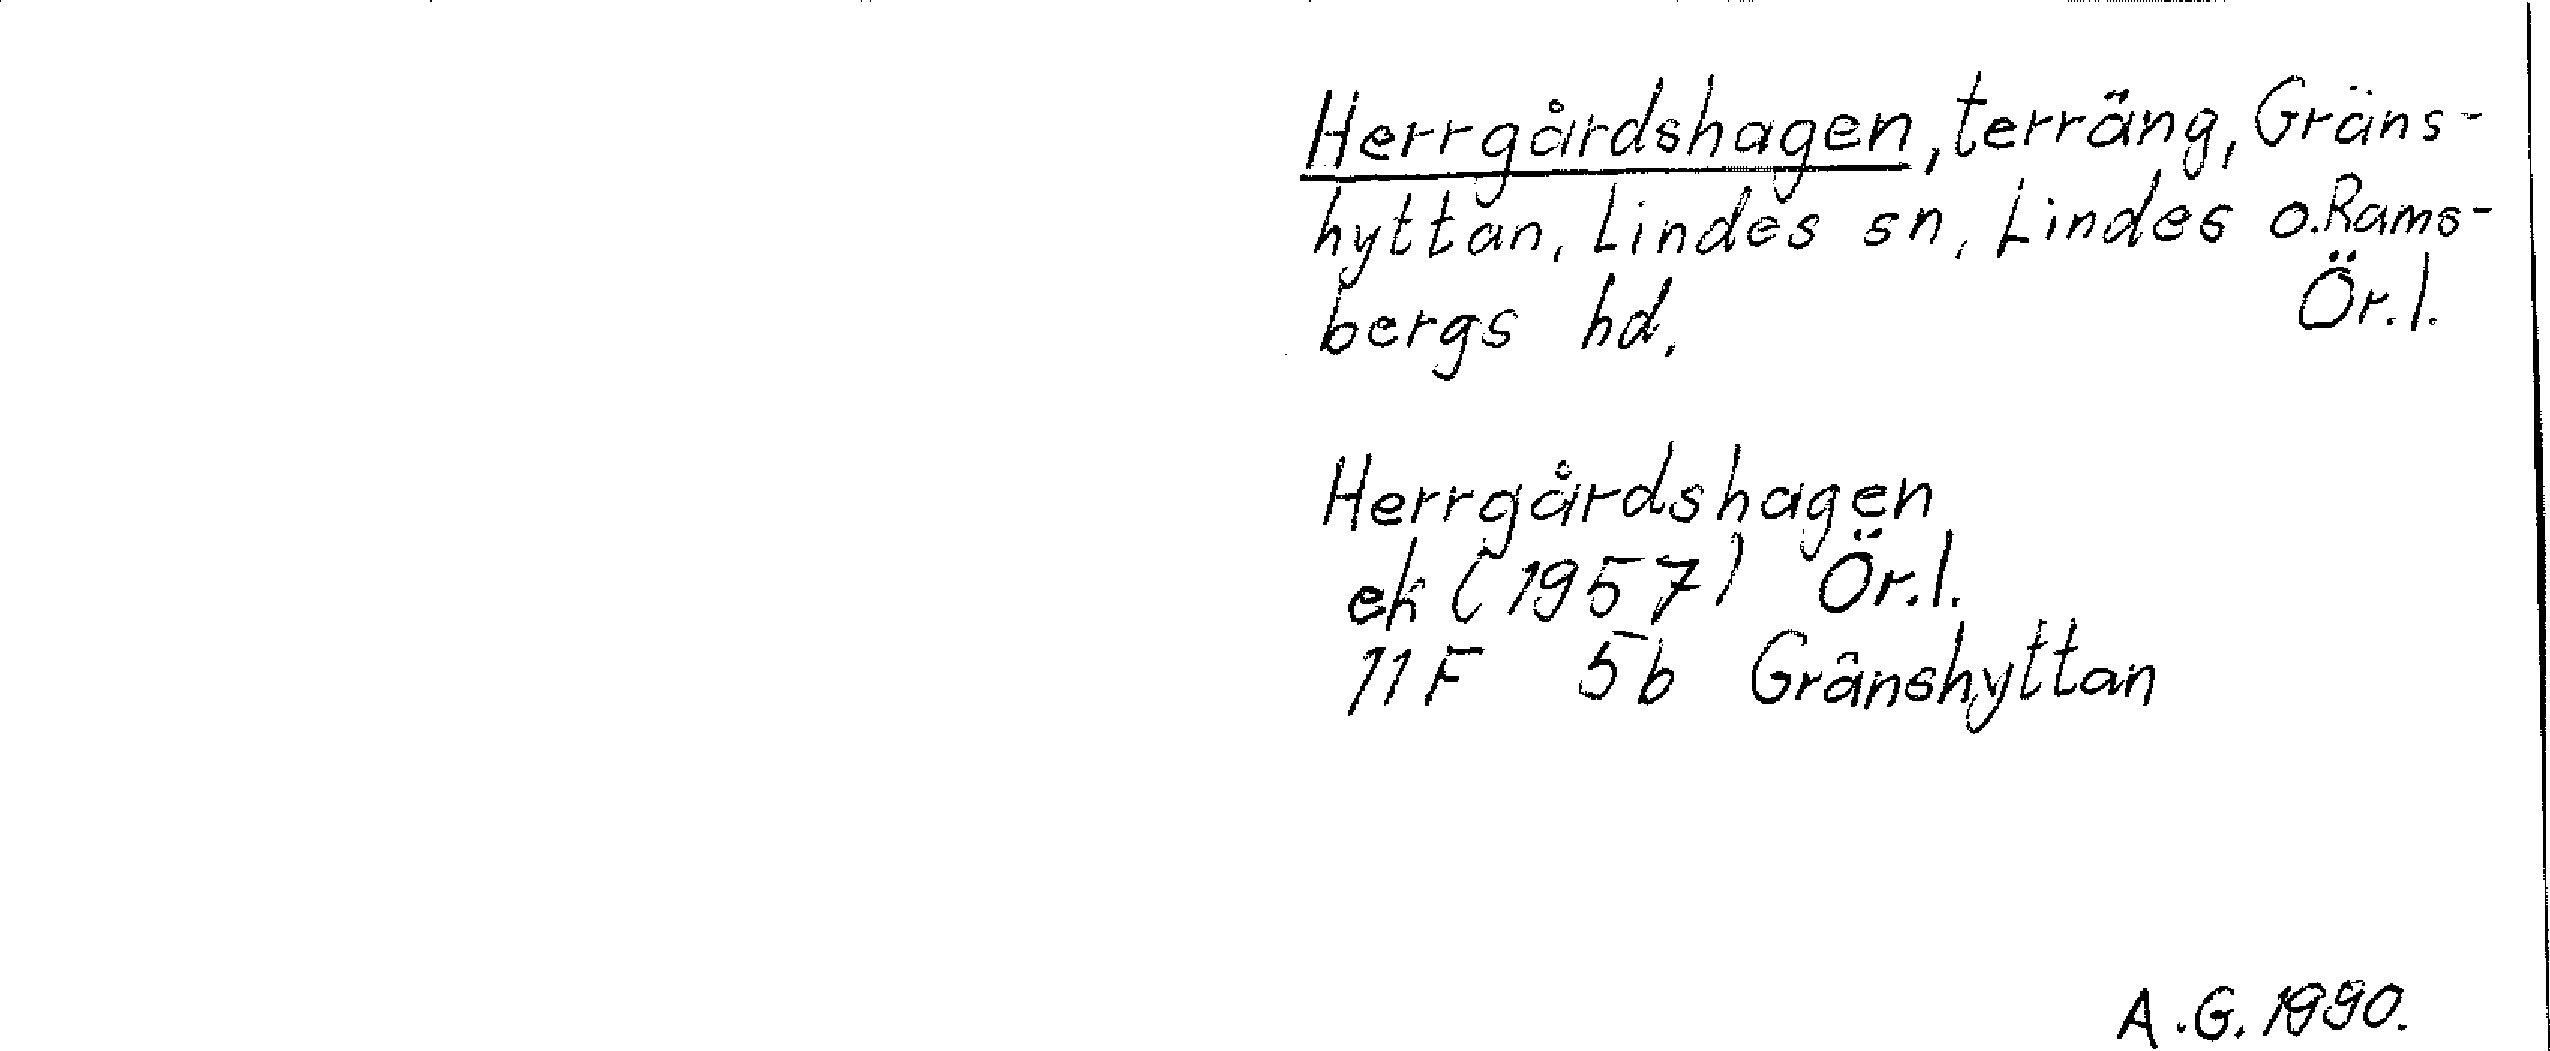 Herrgårdshagen, terräng, Gräns-
hyttan, Lindes sn, Lindes o. Rams-
bergs hd, Ör.l.
Herrgårdshagen
ek (1957) Ör.l.
11F 5b Gränshyttan
A.G. 1990.